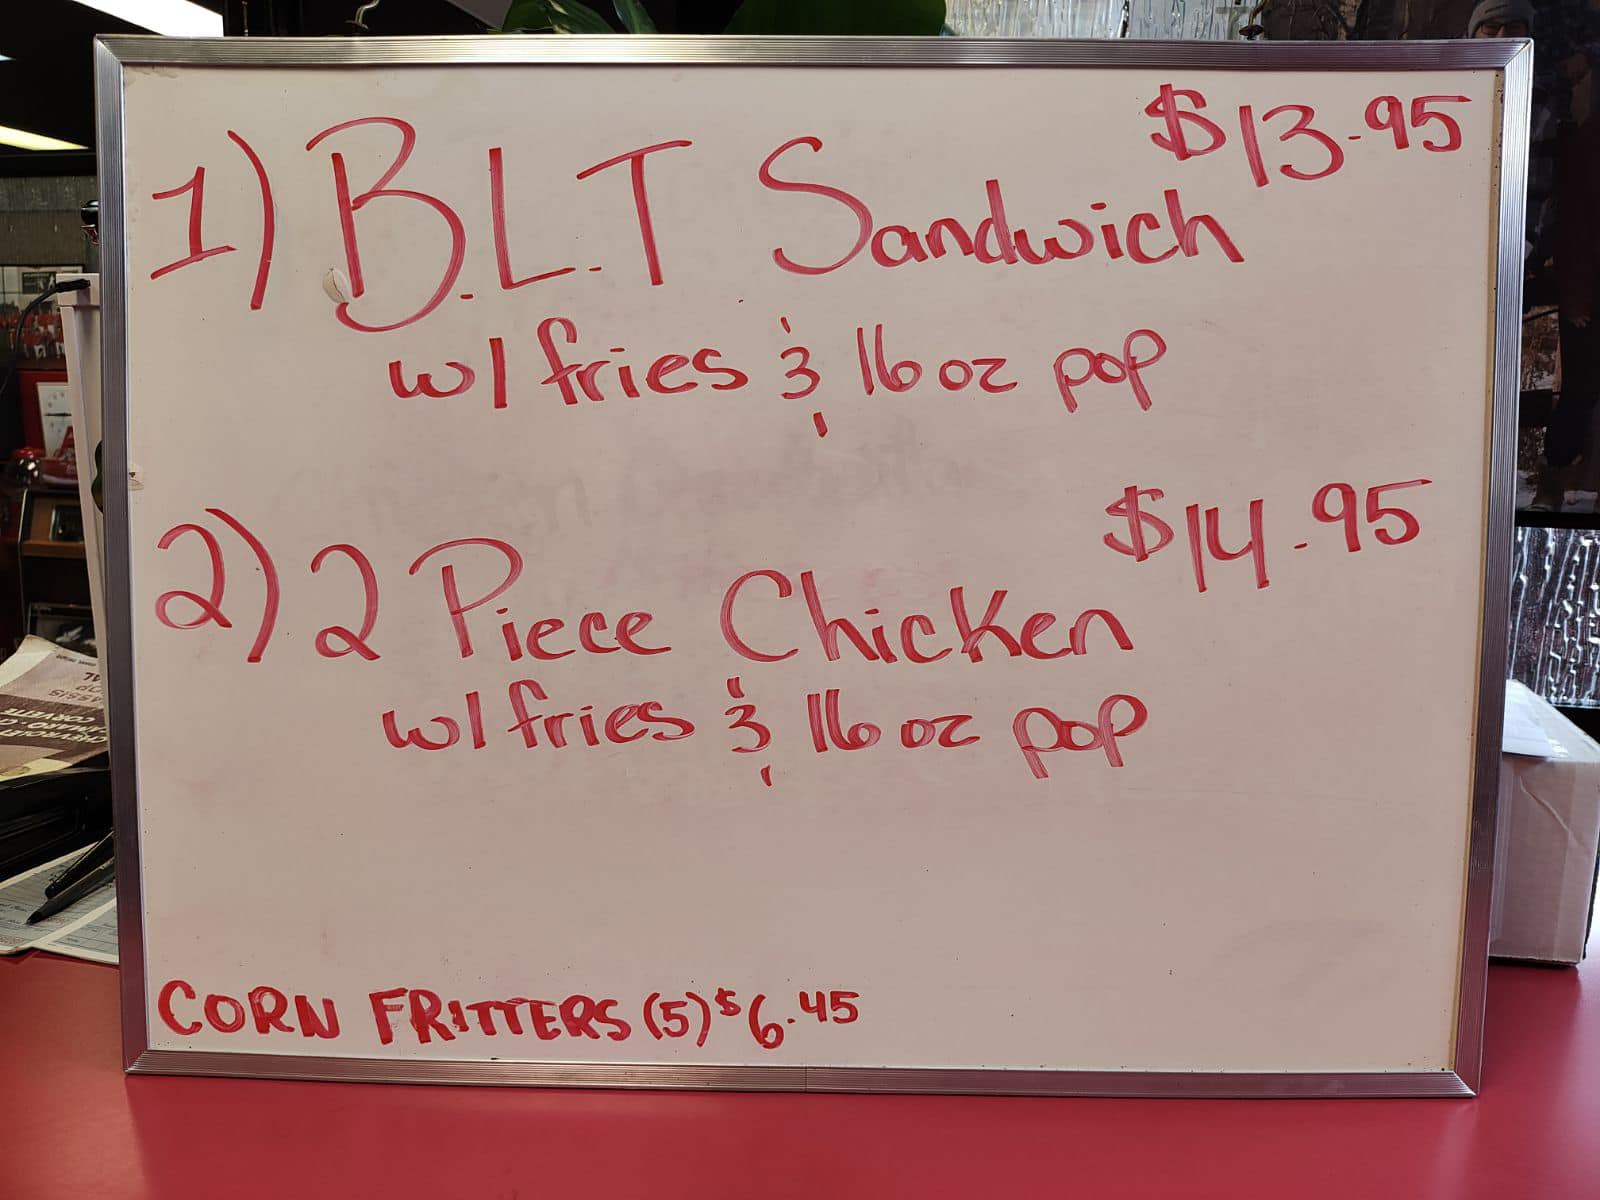 1) B.L.T Sandwich $13.95
w/ fries & 16 oz pop
2) 2 Piece Chicken $14.95
w/ fries & 16 oz pop
CORN FRITTERS (5) $6.45
CHEVROLET
CAMARO
CORVETTE